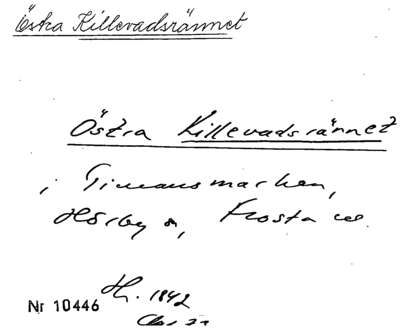 Östra Killevadsrännet
Östra Killevadsrännet
i Timansmarken,
Hörby s, Frosta
H. 1842
Nr 10446